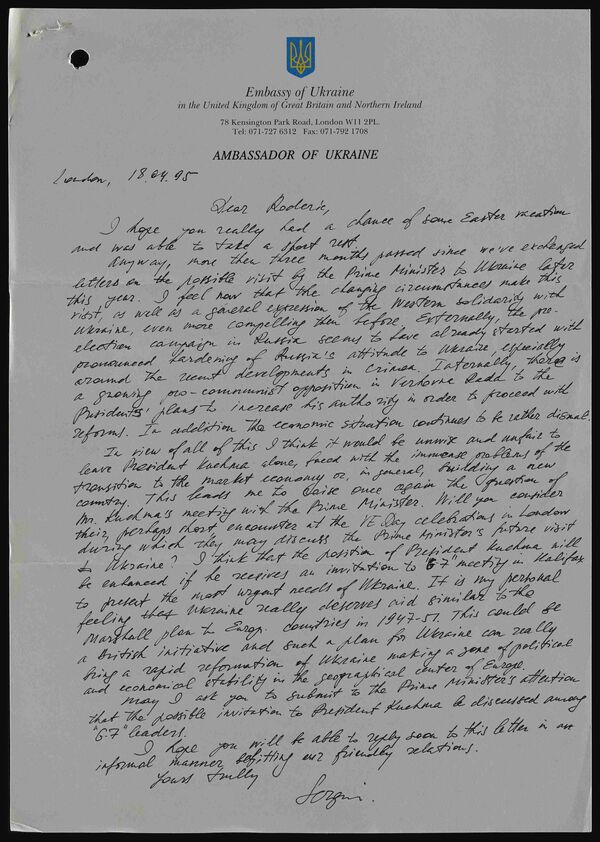 Embassy of Ukraine
in the United Kingdom of Great Britain and Northern Ireland
78 Kensington Park Road, London W11 2PL.
Tel: 071-727 6312 Fax: 071-792 1708
AMBASSADOR OF UKRAINE
London, 18.04.95
Dear Roderic,
I hope you really had a chance of some Easter vacation
and was able to take a short rest.
Anyway, more then three months passed since we've exchanged
letters on the possible visit by the Prime Minister to Ukraine later
this year. I feel now that the changing circumstances make this
visit, as well as a general expression of the Western solidarity with
Ukraine, even more compelling then before. Externally, the pre-
election campaign in Russia seems to have already started with
pronounced hardening of Russia's attitude to Ukraine, especially
around the recent developments in Crimea. Internally, there is
a growing pro-communist opposition in Verkovna Rada to the
Presidents' plans to increase his authority in order to proceed with
reforms. In addition the economic situation continues to be rather dismal.
In view of all of this I think it would be unwise and unfair to
leave President Kuchma alone, faced with the immense problems of the
transition to the market economy or, in general, building a new
country. This leads me to raise once again the question of
Mr. Kuchma's meeting with the Prime Minister. Will you consider
their, perhaps short encounter at the VE Day celebrations in London
during which they may discuss the Prime Minister's future visit
to Ukraine? I think that the position of President Kuchma will
be enhanced if he receives an invitation to "G7" meeting in Halifax
to present the most urgent needs of Ukraine. It is my personal
feeling that Ukraine really deserves aid similar to the
Marshall plan to Europ. countries in 1947-51. This could be
a British initiative and such a plan for Ukraine can really
bring a rapid reformation of Ukraine making a zone of political
and economical stability in the geographical center of Europe.
May I ask you to submit to the Prime Minister's attention
that the possible invitation to President Kuchma be discussed among
"G.7" leaders.
I hope you will be able to reply soon to this letter in an
informal manner befitting our friendly relations.
Yours trully
Sergui.